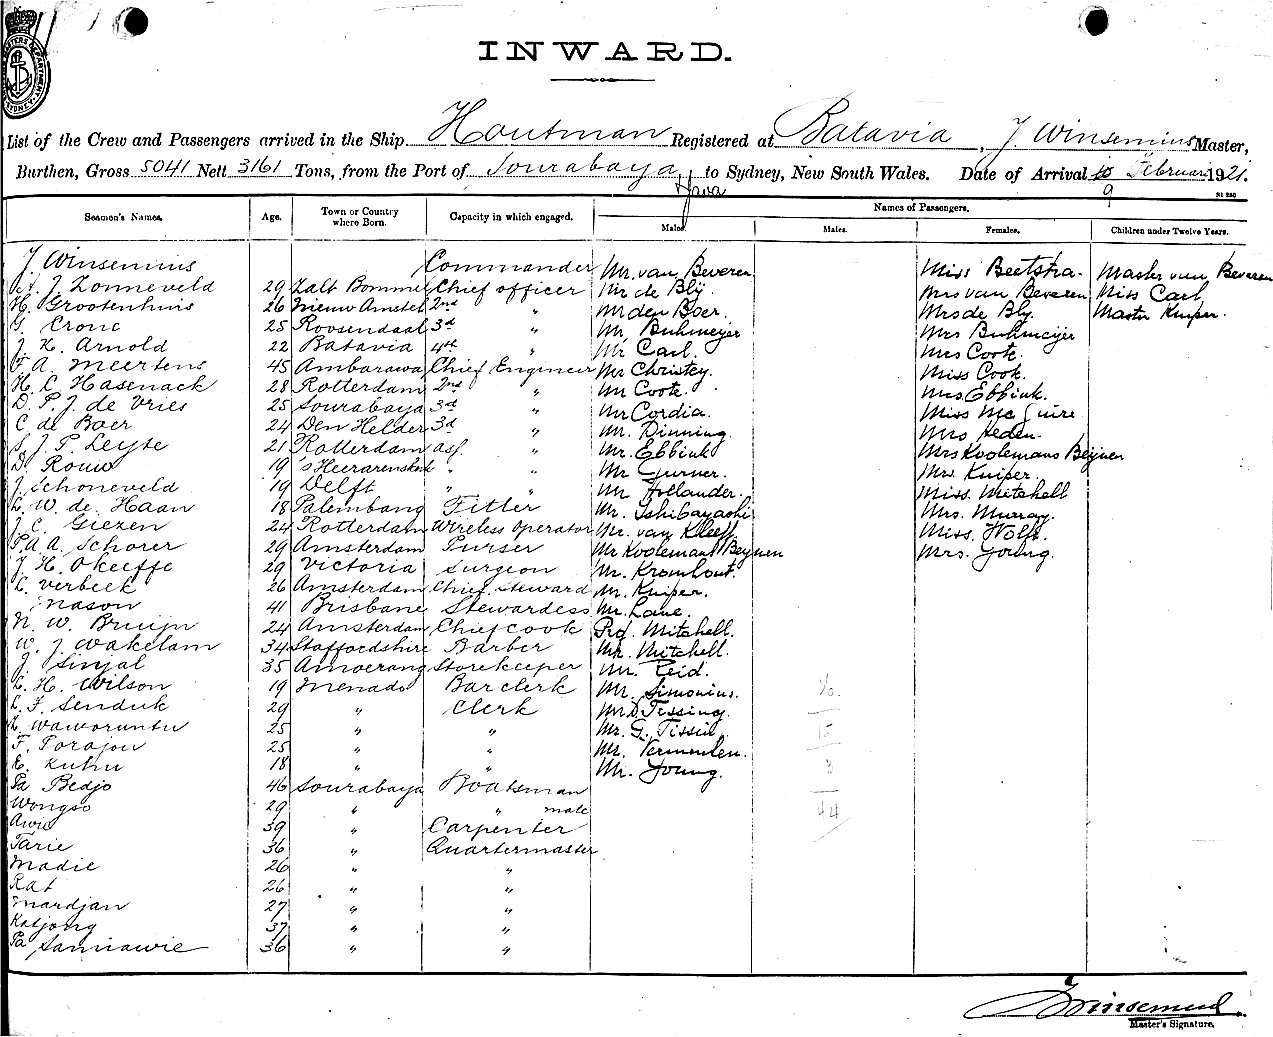 INWARD.
List of the Crew and Passengers arrived in the Ship Houtman Registered at Batavia, J. Winsemius Master,
Burthen, Gross 5041 Nett 3161 Tons, from the Port of Sourabaya Java to Sydney, New South Wales. Date of Arrival 10 9 Februari 1921.
Seamen's Names. Age. Town or Country where Born. Capacity in which engaged. Names of Passengers.
Males. Males. Females. Children under Twelve Years.
J Winsemius Commander Mr. van Beveren Miss Beetstra. Master van Beveren
J. Zonneveld 29 Zalt Bommel Chief officer Mr de Bly Mrs van Beveren Miss Carl
H. Grootenhuis 26 Nieuw Amstel 2nd " Mr den Boer. Mrs de Bly. Master Kuiper.
G. Crone 25 Roosendaal 3d " Mr Buhmeyer Mrs Buhmeijer
J. H. Arnold 22 Batavia 4th " Mr Carl. Mrs Cook.
F. A. Meertens 45 Ambarawa Chief Engineer Mr Christey. Miss Cook.
H. C. Hasenack 28 Rotterdam 2nd " Mr Cook. Mrs Ebbink.
D. P. J. de Vries 25 Sourabaya 3d " Mr Cordia. Miss Mc Guire
C de Boer 24 Den Helder 3d " Mr. Dinning. Mrs Heden.
S. J. P. Leyte 21 Rotterdam ass. " Mr. Ebbink Mrs Koolemans Beijnen
D. Rouw 19 's " " Mr Gurner. Mrs. Kuiper.
J. Schoneveld 19 Delft " " Mr Hollander. Miss. Mitchell
L. W. de Haan 18 Palembang Fitter Mr. Ishibayashi Mrs. Murray.
J. C. Giezen 24 Rotterdam Wireless operator Mr. van Kleeff. Miss. Wolff.
P. A. A. Schorer 29 Amsterdam Purser Mr Koolemans Beynen Mrs. Young.
J. H. Okeeffe 29 Victoria Surgeon Mr. Kromhout.
L. Verbeek 26 Amsterdam Chief Steward Mr. Kuiper.
Mason 41 Brisbane Stewardess Mr Lane.
N. W. Bruijn 24 Amsterdam Chief cook Prof. Mitchell.
W. J. Wakelam 34 Staffordshire Barber Mr. Mitchell.
J. Sinjal 35 Amoerang Storekeeper Mr. Reid.
L. H. Wilson 19 Menado Bar clerk Mr. Simonius.
L. F. Senduk 29 " Clerk Mr D. Tissing.
Waworuntu 25 " " Mr. G. Tissing.
F. Torajou 25 " " Mr. Vermeulen.
E. Kuhu 18 " " Mr. Young.
Pa Bedjo 46 Sourabaya Boatsman
Wongso 29 " " mate
Awie 39 " Carpenter
Tarie 36 " Quartermaster
Madie 26 " "
Rat 26 " "
Mardjan 27 " "
Katjong 37 " "
Pa Samiawie 36 " "
J Winsemius.
Master's Signature.